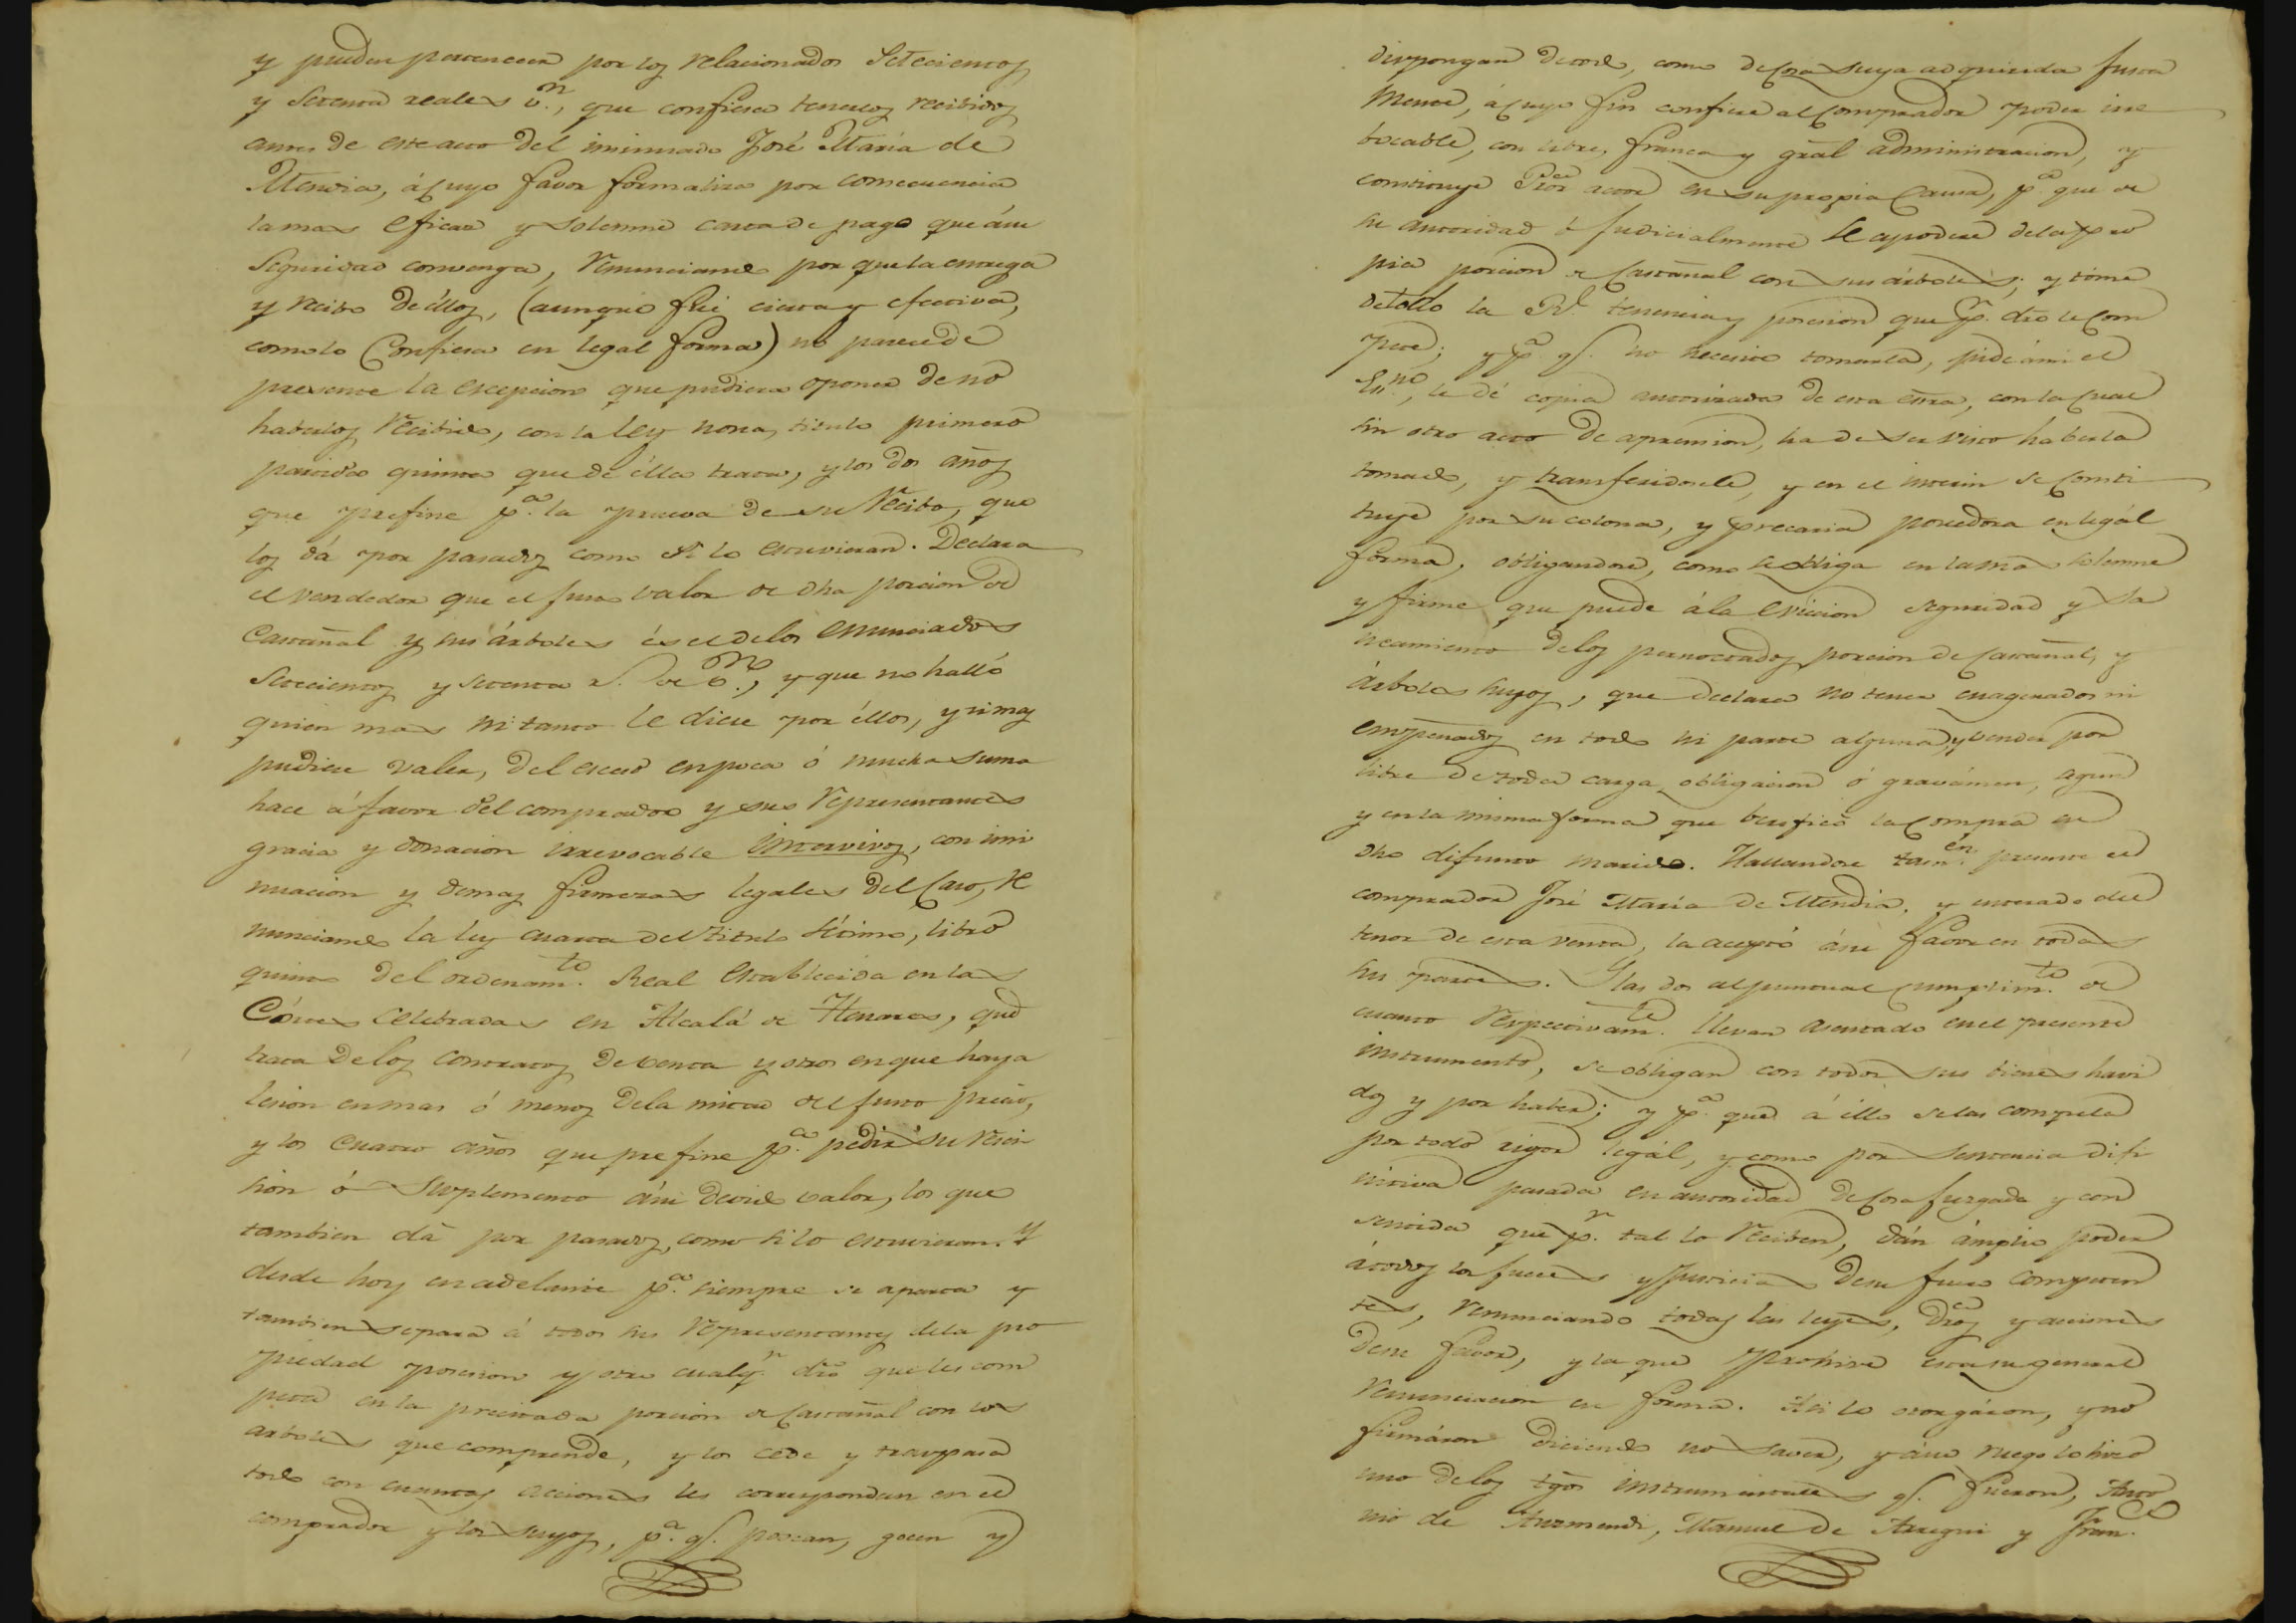 y pueden pertenecer por los relacionados Setecientos
y Setenta reales v.n, que confiesa tenerlos recibidos
antes de este acto del insinuado José María de
Mendia, á cuyo favor formaliza por consecuencia
la mas eficaz y solemne carta de pago que á su
Seguridad convenga, renunciando por que la entrega
y recibo de éllos, (aunque fué cierta y efectiva,
como lo Confiesa en legal forma) no parece de
presente la escepcion que pudiera oponer de no
haberlos recibido, con la ley nona, titulo primero
partida quinta que de élla trata, y los dos años
que prefine p.a la prueva de su recibo, que
los dá por pasados como si lo estuvieran. Declara
el vendedor que el justo valor de dha porcion de
Castañal y sus árboles és el de los enunciados
Setecientos y setenta r.s de v.n, y que no halló
quien mas ni tanto le diese por éllos, y si mas
pudiese valer, del esceso en poca ó mucha suma
hace á favor del comprador y sus representantes
gracia y donacion irrevocable intervivos, con insi
nuacion y demas firmezas legales del Caso, re
nunciando la ley cuarta del titulo sétimo, libro
quinto del ordenam.to Real establecida en las
Córtes celebradas en Alcalá de Henares, que
trata de los contratos de venta y otros en que haya
lesion en mas ó menos de la mitad del justo precio,
y los cuatro años que prefine p.a pedir su resci
sion ó suplemento á su devido valor, los que
tambien dá por pasados, como si lo estuvieran. Y
desde hoy en adelante p.a siempre se aparta y
tambien separa á todos sus representantes de la pro
piedad posesion y otro cualq.r dro que les com
peta en la precitada porcion de Castañal con los
arboles que comprende, y los cede y traspasa
todo con cuantas acciones les correspondan en el
comprador y los suyos, p.a q.e posean, gocen y
dispongan de todo, como de Cosa suya adquirida justa
Mente, á cuyo fin confiere al Comprador poder irre
bocable, con libre, franca y gral administracion, y
constituye Pror actor en su propia Causa, p.a que de
su autoridad ó judicialmente se apodere de la pro
pia porcion de Castañal con sus árboles; y tome
de todo la R.l tenencia y posesion que p.r dro le Com
pete; y p.a q.e no necesite tomarla, pide á mi el
Ess.no, le dé copia autorizada de esta essra, con la Cual
sin otro acto de apremsion, ha de ser visto haberla
tomado, y transferidosele, y en el interin se Consti
tuye por su colona, y precaria poseedora en legál
forma, obligandose, como se obliga en la mas solemne
y firme que puede á la eviccion seguridad y sa
neamiento de los pernoctados porcion de Castañal, y
árboles suyos, que declara no tener enagenados ni
empeñados en todo ni parte alguna, y vender por
libre de toda carga, obligacion ó gravámen, segun
y en la misma forma que berificó la Compra su
dho difunto marido. Hallandose tam.en presente el
comprador José María de Mendia, y enterado del
tenor de esta venta, la aceptó á su favor en todas
sus partes. Y las dos al puntual cumplim.to de
cuanto respectivam.te llevan asentado en el presente
instrumento, se obligan con todos sus bienes havi
dos y por haber; y p.a que á éllo se las compela
por todo rigor legál, y como por sentencia difi
nitiva pasada en autoridad de Cosa juzgada y con
sentida que p.r tal lo reciben, dán ámplio poder
á todos los jueces y Justicias de su fuero competen
tes, renunciando todas las leyes, dros y acciones
de su favor, y la que prohive esta su general
renunciacion en forma. Asi lo otorgáron, y no
firmáron diciendo no saver, y á su ruego lo hizo
uno de los tgos instrumentales q.e fueron, Anto
nio de Aurmendi, Manuel de Arregui y Fran.co